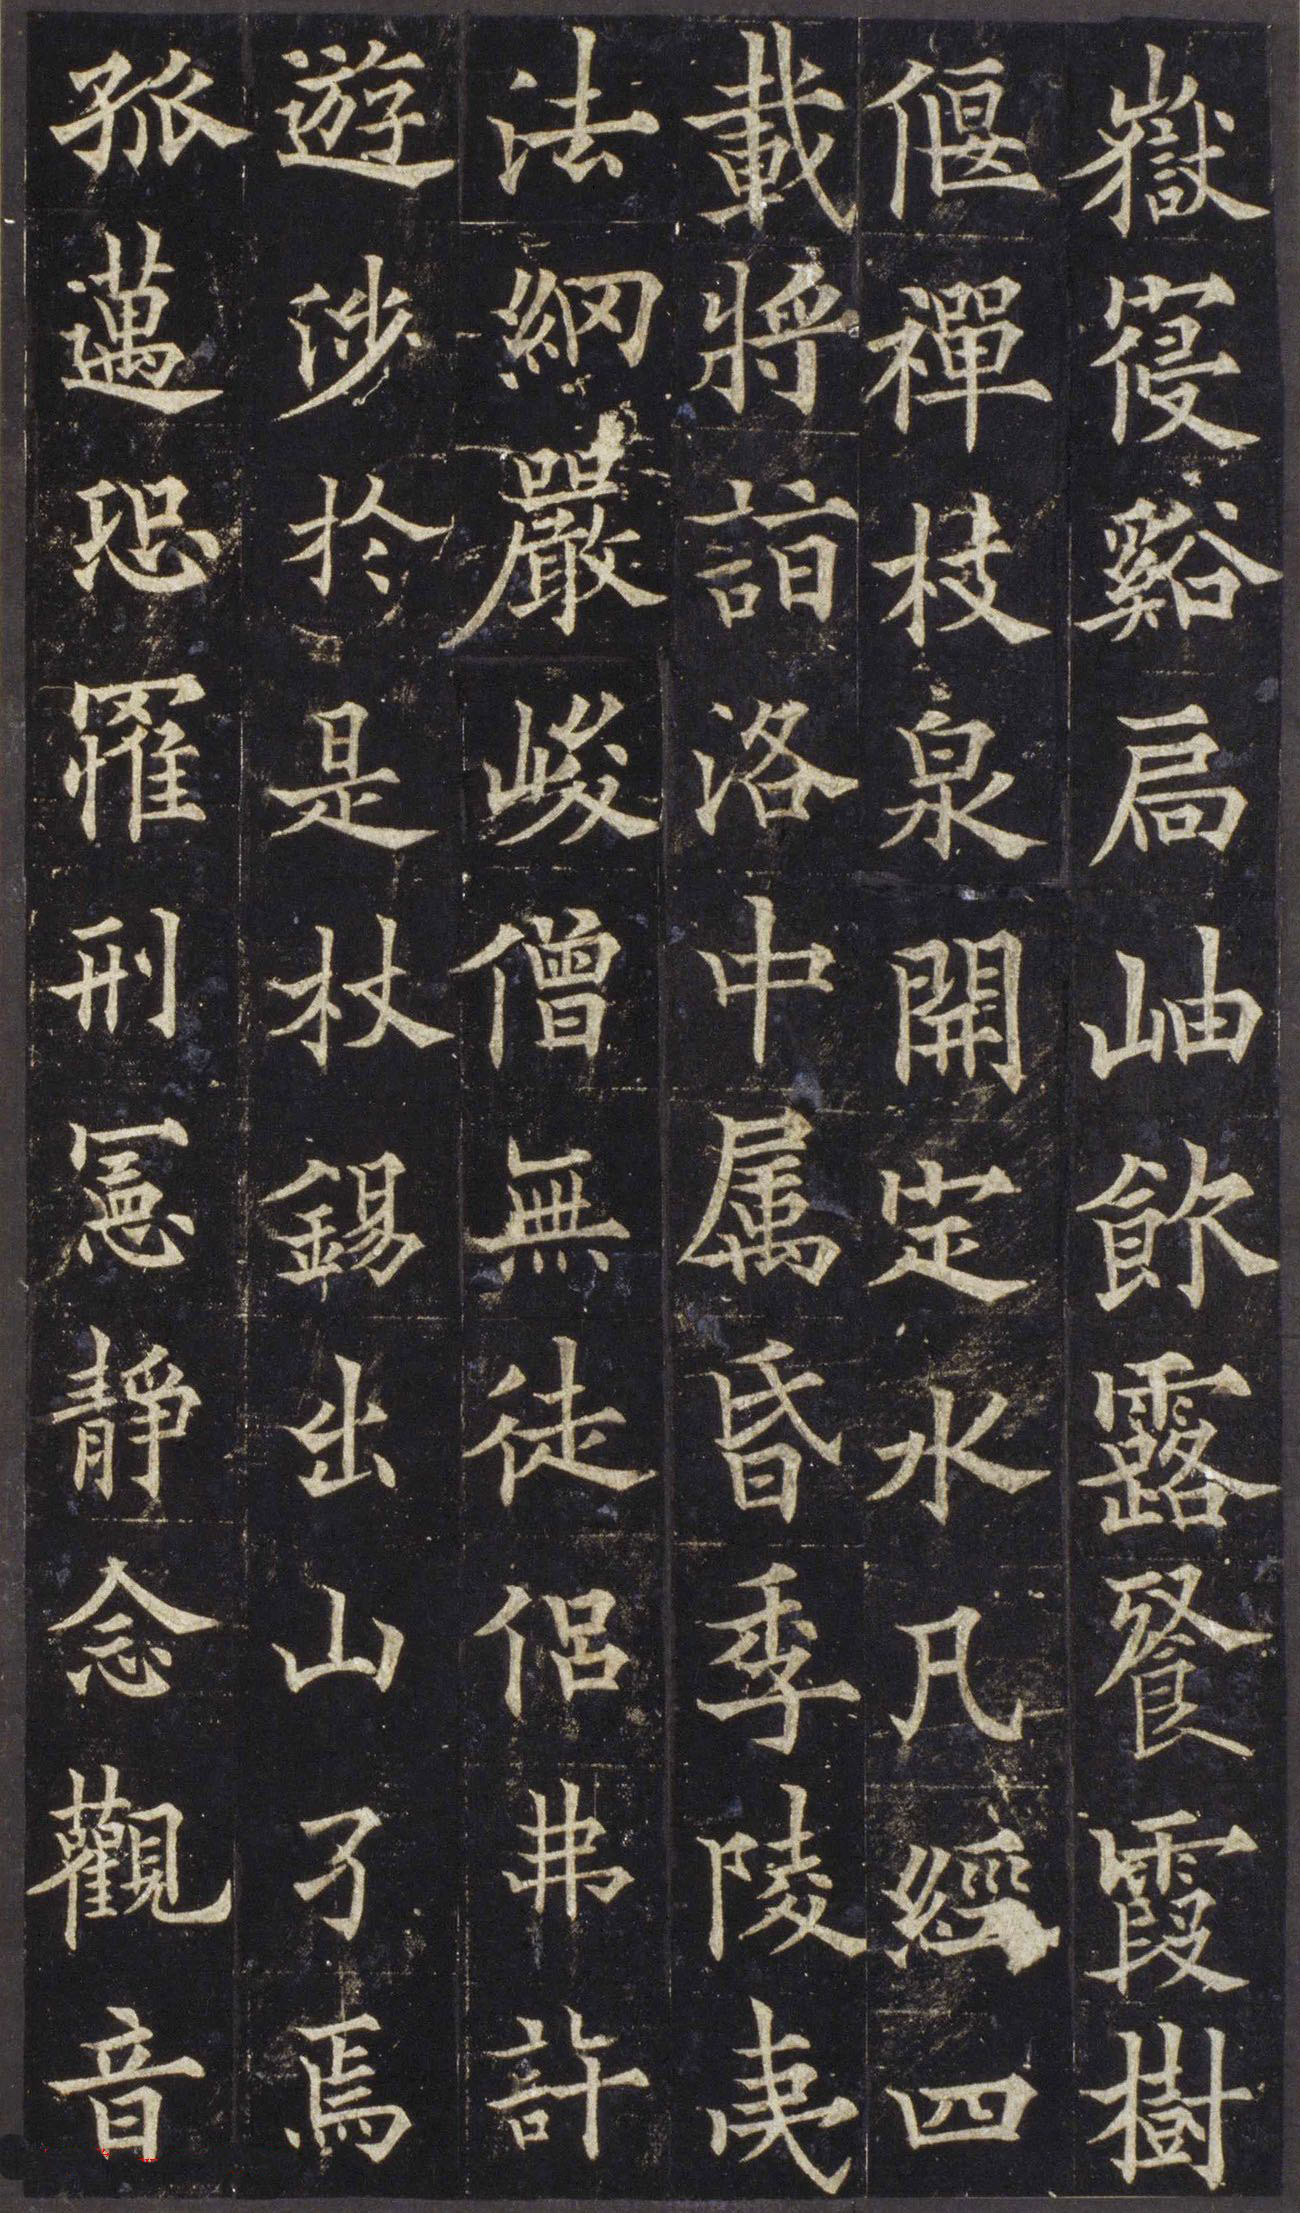 嶽寑谿扃岫飲露飡霞樹
偃禪枝泉開定水凡經四
載將詣洛中属昏季陵夷
法網嚴峻僧無徒侣弗許
遊涉於是杖錫出山了焉
孤邁恐罹刑憲靜念觀音